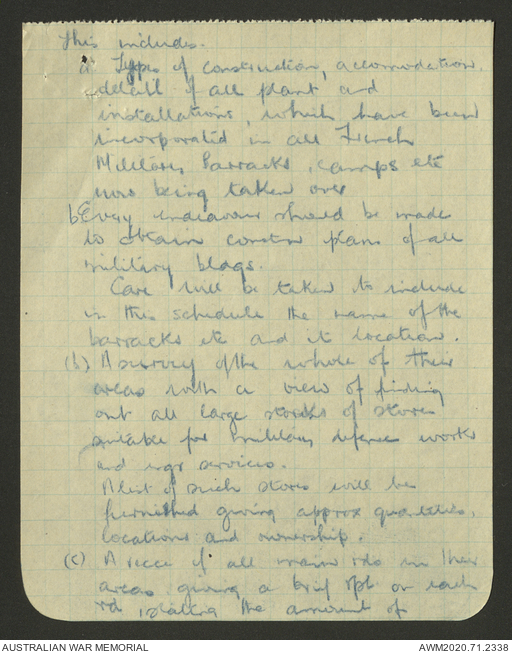 this includes.
a Types of construction, accomodation,
detail of all plant and
installations, which have been
incorporated in all French
Military Barracks, camps etc
now being taken over
b Every endeavour should be made
to obtain constn plans of all
military bldgs.
Care will be taken to include
in this schedule the name of the
barracks etc and it location.
(b) A survey of the whole of their
areas with a view of finding
out all large stocks of stores
suitable for military defence works
and engr services.
A list of such stores will be
furnished giving approx quantities,
locations and ownership.
(c) A recce of all main rds in their
areas giving a brief rpt on each
rd stating the amount of
AUSTRALIAN WAR MEMORIAL
AWM2020.71.2338